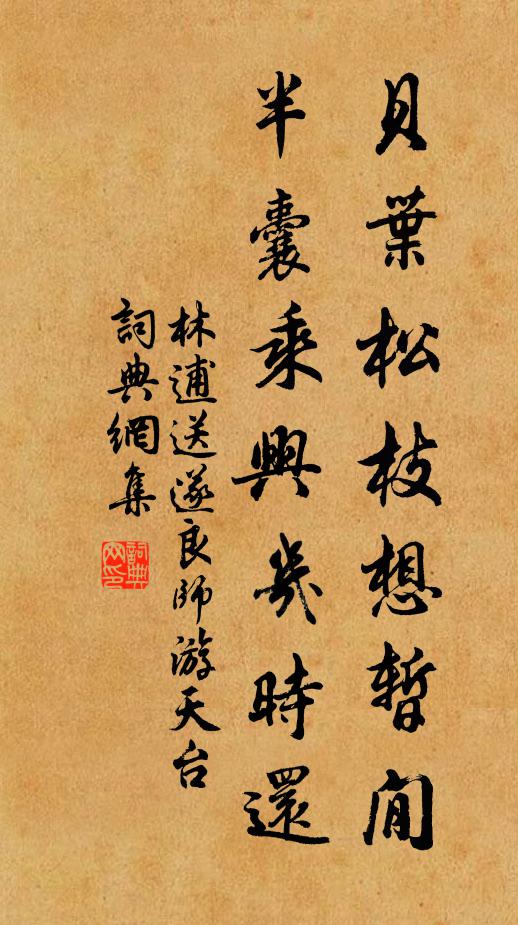 貝葉松枝想暫閒
半囊乘興幾時還
林逋送遂良師游天台
詞典網集
詞典網印